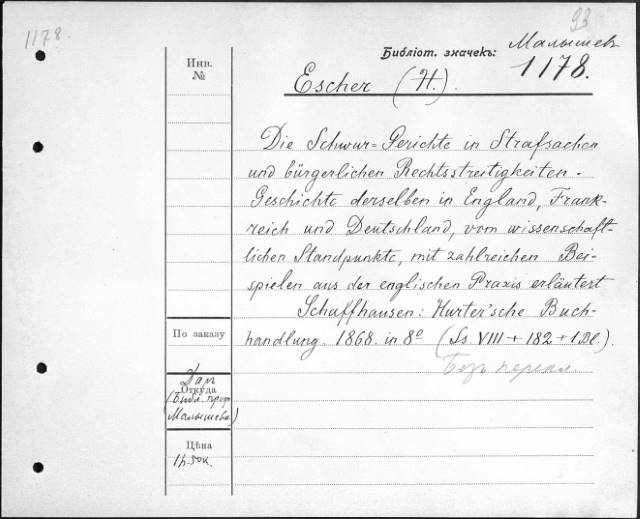 1178.
93
Малышев
Библіот. значекъ:
1178.
Инв.
№
Escher (H.).
Die Schwur-Gerichte in Strafsachen
und bürgerlichen Rechtsstreitigkeiten.
Geschichte derselben in England, Frank-
reich und Deutschland, vom wissenschaft-
lichen Standpunkte, mit zahlreichen Bei-
spielen aus der englischen Praxis erläutert
Schaffhausen: Hurter'sche Buch-
handlung. 1868. in 8º (Ss. VIII + 182 + 1 Bl.).
Безъ перепл.
По заказу
Даръ
Откуда
(Библ. проф.
Малышева)
Цѣна
1 р. 50 к.